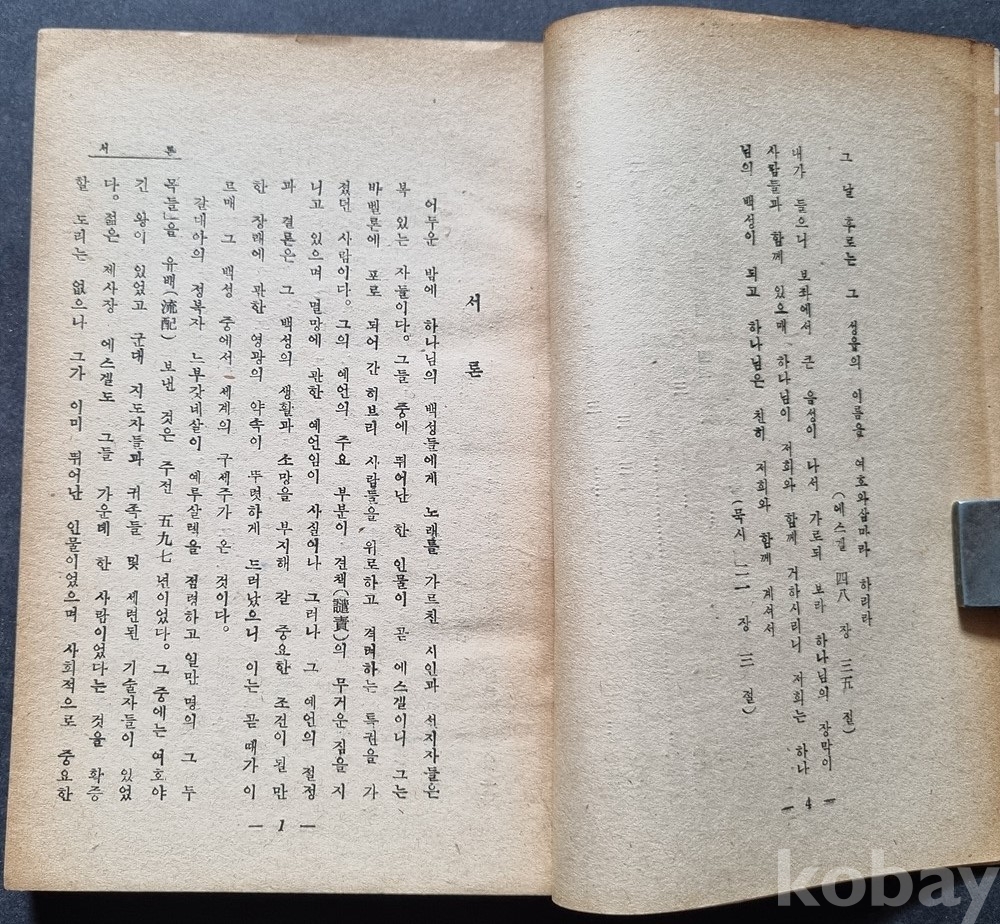 그 날 후로는 그 성읍의 이름을 여호와삼마라 하리라
(에스겔 四八 장 三五 절)
내가 들으니 보좌에서 큰 음성이 나서 가로되 보라 하나님의 장막이
사람들과 함께 있으매 하나님이 저희와 함께 거하시리니 저희는 하나
님의 백성이 되고 하나님은 친히 저희와 함께 계셔서
(묵시 二一 장 三 절)
— 4 —
서 론
어두운 밤에 하나님의 백성들에게 노래를 가르친 시인과 선지자들은
복 있는 자들이다。그들 중에 뛰어난 한 인물이 곧 에스겔이니 그는
바벨론에 포로 되어 간 히브리 사람들을 위로하고 격려하는 특권을 가
졌던 사람이다。그의 예언의 주요 부분이 견책(譴責)의 무거운 짐을 지
니고 있으며 멸망에 관한 예언임이 사실이나 그러나 그 예언의 절정
과 결론은 그 백성의 생활과 소망을 부지해 갈 중요한 조건이 될 만
한 장래에 관한 영광의 약속이 뚜렷하게 드러났으니 이는 곧 때가 이
르매 그 백성 중에서 세계의 구세주가 온 것이다。
갈대아의 정복자 느부갓네살이 예루살렘을 점령하고 일만 명의 그 두
목들」을 유배(流配) 보낸 것은 주전 五九七 년이었다。그 중에는 여호야
긴 왕이 있었고 군대 지도자들과 귀족들 및 세련된 기술자들이 있었
다。젊은 제사장 에스겔도 그들 가운데 한 사람이었다는 것을 확증
할 도리는 없으나 그가 이미 뛰어난 인물이었으며 사회적으로 중요한
서 론
— 1 —
kobay